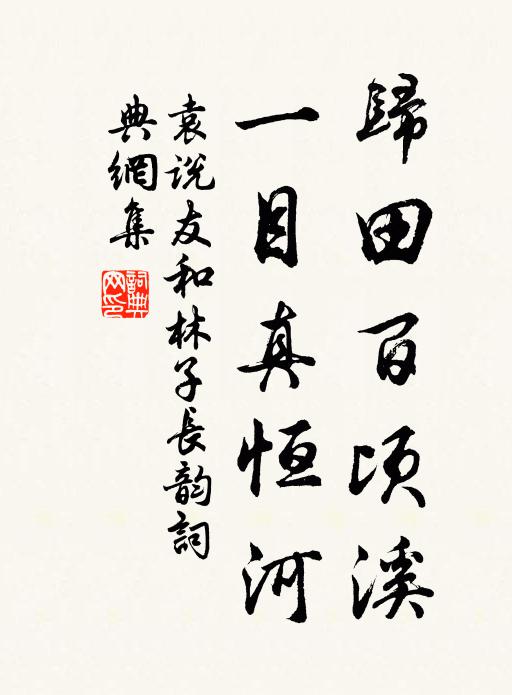 歸田百頃溪
一目真恒河
袁说友和林子長韵詞
典網集
詞典
网印